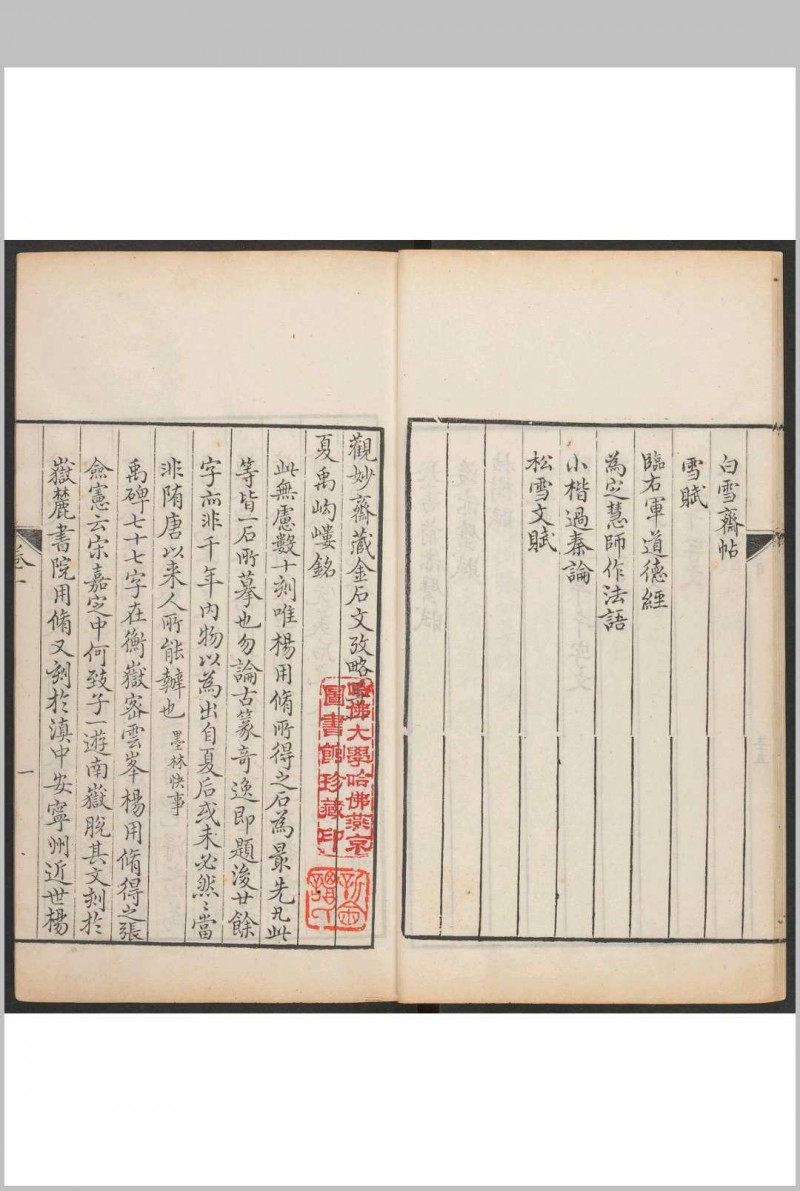 白雪齋帖
雪賦
臨右軍道德經
為定慧師作法語
小楷過秦論
松雪文賦
觀妙齋藏金石文攷略卷一
夏禹岣嶁銘
此無慮數十刻唯楊用脩所得之石為最先凡此
等皆一石所摹也勿論古篆奇逸即題後廿餘
字亦非千年內物以為出自夏后或未必然〻當
非隋唐以來人所能辦也 墨林快事
禹碑七十七字在衡嶽密雲峯楊用脩得之張
僉憲云宋嘉定中何致子一遊南嶽脫其文刻於
嶽麓書院用脩又刻於滇中安寧州近世楊
卷一
一
哈佛大學哈佛燕京
圖書館珍藏印